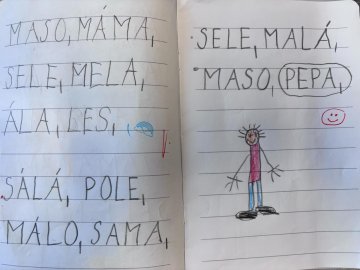 MASO, MÁMA,
SELE, MELA,
ÁLA, LES,
SÁLÁ, POLE,
MÁLO, SAMA,
SELE, MALÁ,
MASO, PEPA,